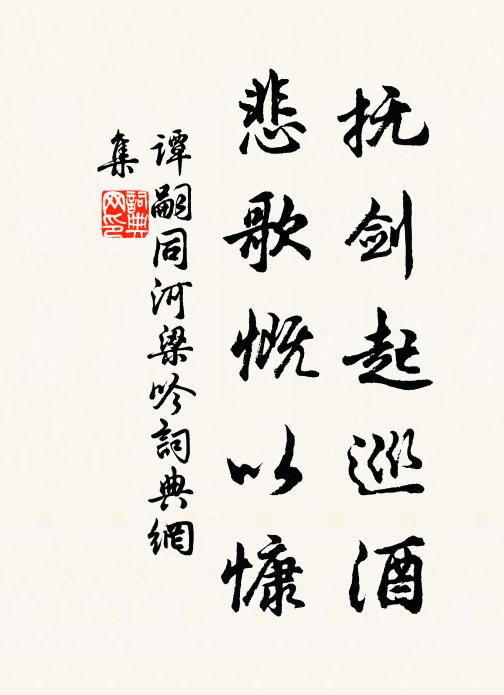 抚剑起巡酒
悲歌慨以慷
谭嗣同河梁吟詞典網
集
詞典網印